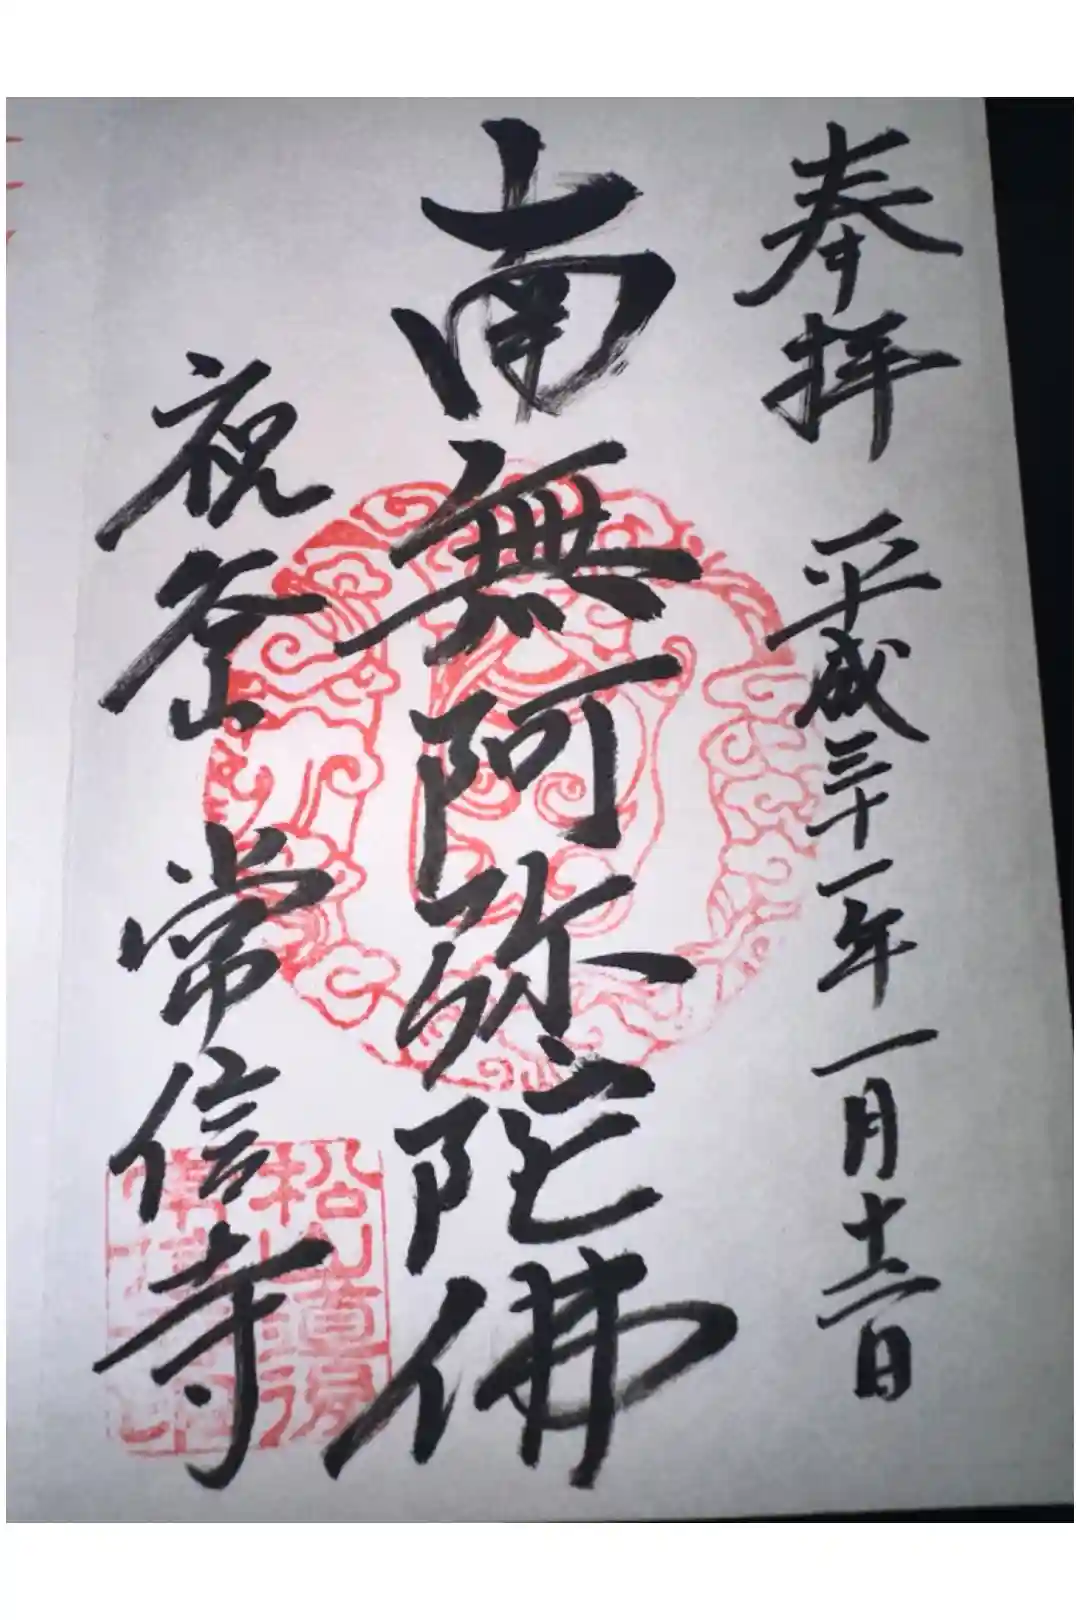 奉拝 平成三十一年一月十二日
南無阿弥陀佛
祝谷山 常信寺
松山道後